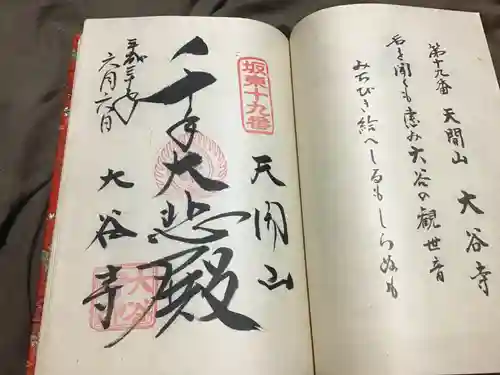 第十九番 天開山 大谷寺
名を聞くも恵み大谷の観世音
みちびき給へしるもしらぬも
坂東十九番
天開山
千手大悲殿
大谷寺
平成三十年
六月六日